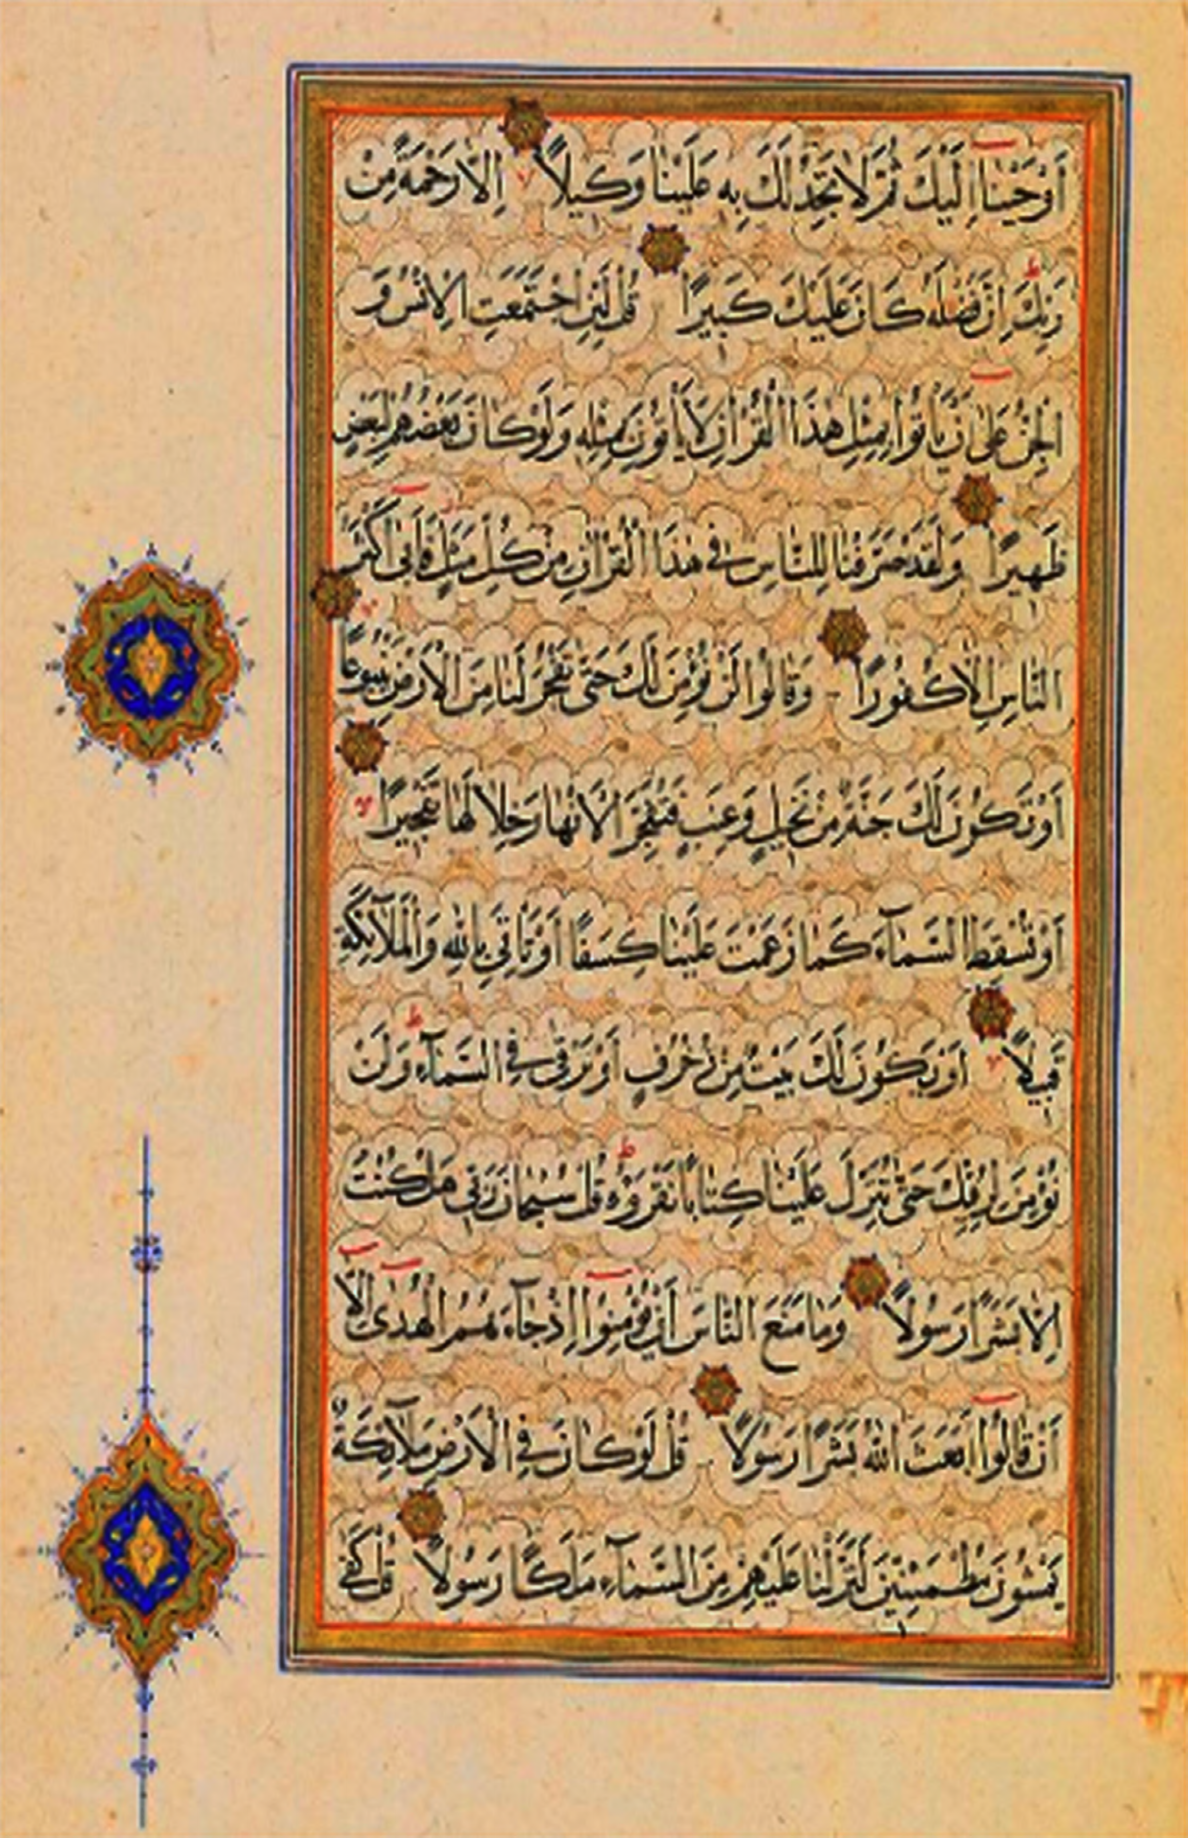 أَوْحَيْنَا إِلَيْكَ ثُمَّ لَا تَجِدُ لَكَ بِهِ عَلَيْنَا وَكِيلًا إِلَّا رَحْمَةً مِنْ
رَبِّكَ إِنَّ فَضْلَهُ كَانَ عَلَيْكَ كَبِيرًا قُلْ لَئِنِ اجْتَمَعَتِ الْإِنْسُ وَ
الْجِنُّ عَلَى أَنْ يَأْتُوا بِمِثْلِ هَذَا الْقُرْآنِ لَا يَأْتُونَ بِمِثْلِهِ وَلَوْ كَانَ بَعْضُهُمْ لِبَعْضٍ
ظَهِيرًا وَلَقَدْ صَرَّفْنَا لِلنَّاسِ فِي هَذَا الْقُرْآنِ مِنْ كُلِّ مَثَلٍ فَأَبَى أَكْثَرُ
النَّاسِ إِلَّا كُفُورًا وَقَالُوا لَنْ نُؤْمِنَ لَكَ حَتَّى تَفْجُرَ لَنَا مِنَ الْأَرْضِ يَنْبُوعًا
أَوْ تَكُونَ لَكَ جَنَّةٌ مِنْ نَخِيلٍ وَعِنَبٍ فَتُفَجِّرَ الْأَنْهَارَ خِلَالَهَا تَفْجِيرًا
أَوْ تُسْقِطَ السَّمَاءَ كَمَا زَعَمْتَ عَلَيْنَا كِسَفًا أَوْ تَأْتِيَ بِاللَّهِ وَالْمَلَائِكَةِ
قَبِيلًا أَوْ يَكُونَ لَكَ بَيْتٌ مِنْ زُخْرُفٍ أَوْ تَرْقَى فِي السَّمَاءِ وَلَنْ
نُؤْمِنَ لِرُقِيِّكَ حَتَّى تُنَزِّلَ عَلَيْنَا كِتَابًا نَقْرَؤُهُ قُلْ سُبْحَانَ رَبِّي هَلْ كُنْتُ
إِلَّا بَشَرًا رَسُولًا وَمَا مَنَعَ النَّاسَ أَنْ يُؤْمِنُوا إِذْ جَاءَهُمُ الْهُدَى إِلَّا
أَنْ قَالُوا أَبَعَثَ اللَّهُ بَشَرًا رَسُولًا قُلْ لَوْ كَانَ فِي الْأَرْضِ مَلَائِكَةٌ
يَمْشُونَ مُطْمَئِنِّينَ لَنَزَّلْنَا عَلَيْهِمْ مِنَ السَّمَاءِ مَلَكًا رَسُولًا قُلْ كَفَى